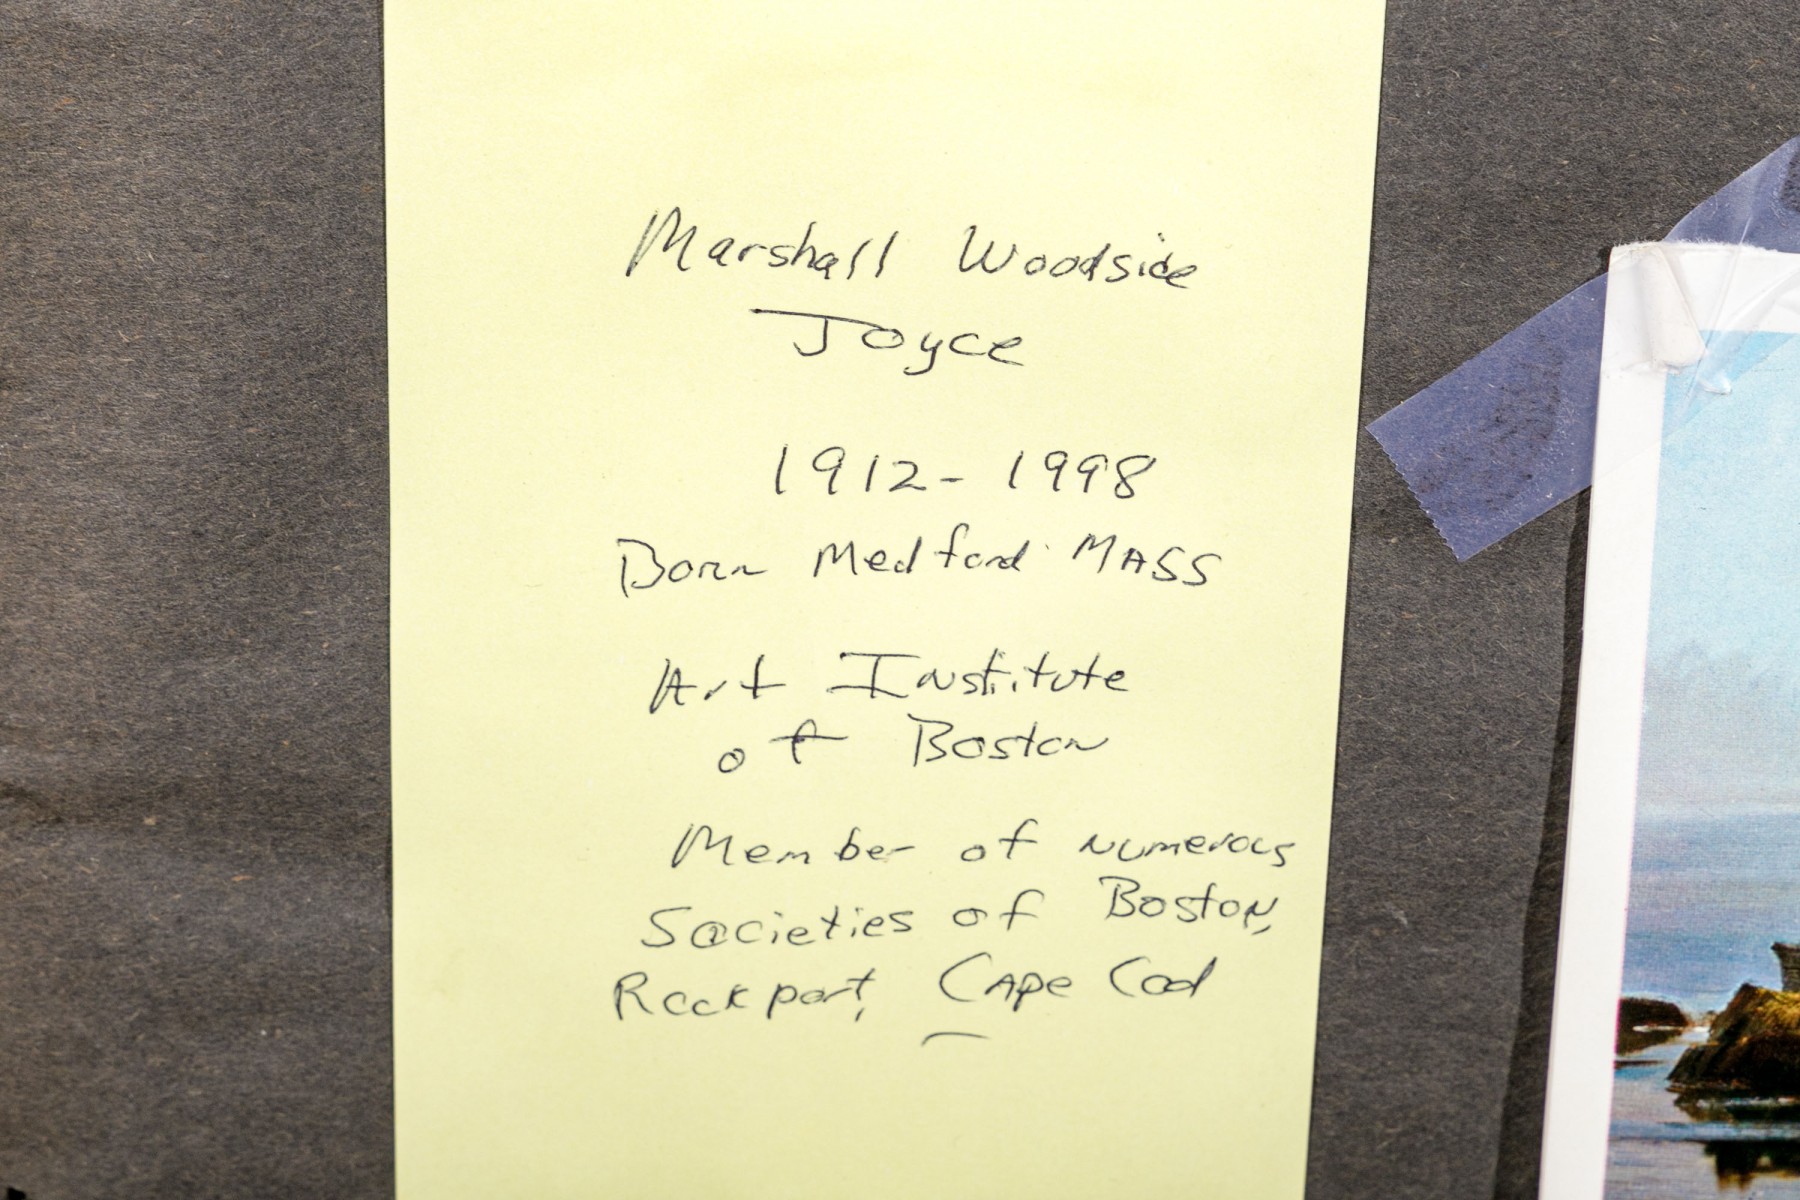 Marshall Woodside
Joyce
1912 - 1998
Born Medford MASS
Art Institute
of Boston
Member of numerous
Societies of Boston,
Rockport, Cape Cod